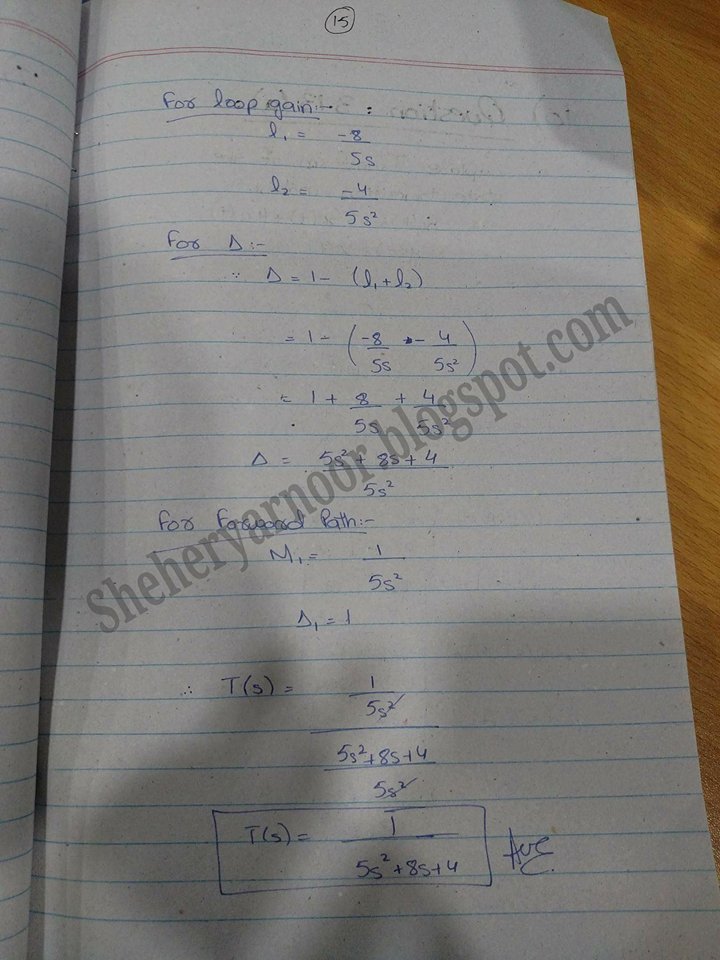 15
For loop gain:- :
l₁ = -8/5s
l₂ = -4/5s²
For Δ:-
∵ Δ = 1 - (l₁ + l₂)
= 1 - (-8/5s - 4/5s²)
= 1 + 8/5s + 4/5s²
Δ = 5s² + 8s + 4/5s²
For Forward Path:-
M₁ = 1/5s²
Δ₁ = 1
∴ T(s) = 1/5s² / 5s²+8s+4/5s²
T(s) = 1/5s²+8s+4
Sheheryarnoor.blogspot.com